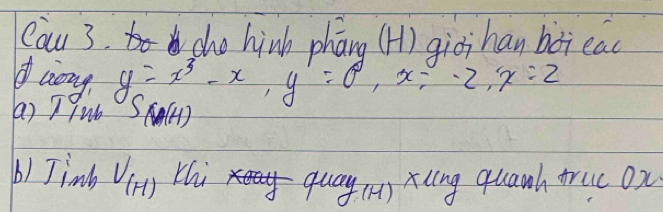 Câu 3. cho hình phẳng (H) giới hạn bởi các
đường y = x³ - x, y = 0, x = -2, x = 2
a) Tính S(H)
b) Tính V(H) khi quay (H) xung quanh trục Ox